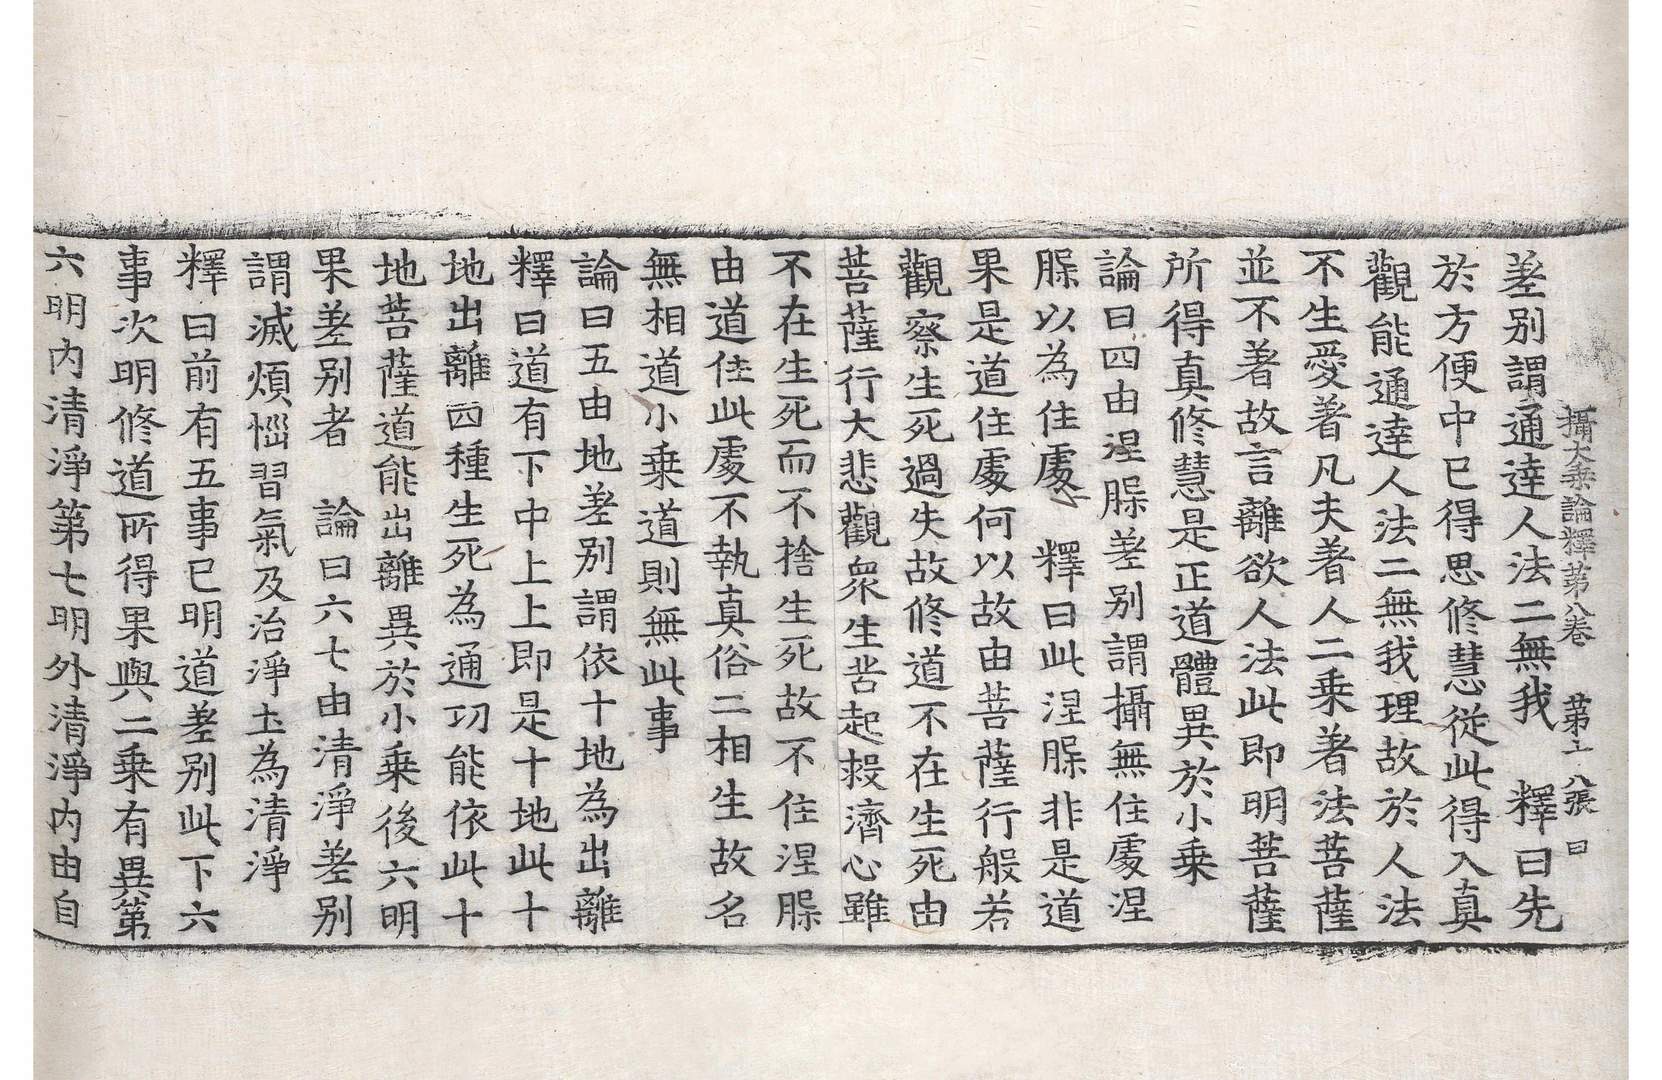 攝大乘論釋第八卷　第十八張　曰
差別謂通達人法二無我　釋曰先
於方便中已得思修慧從此得入真
觀能通達人法二無我理故於人法
不生愛著凡夫著人二乘著法菩薩
並不著故言離欲人法此即明菩薩
所得真修慧是正道體異於小乘
論曰四由涅槃差別謂攝無住處涅
槃以為住處　釋曰此涅槃非是道
果是道住處何以故由菩薩行般若
觀察生死過失故修道不在生死由
菩薩行大悲觀眾生苦起救濟心雖
不在生死而不捨生死故不住涅槃
由道住此處不執真俗二相生故名
無相道小乘道則無此事
論曰五由地差別謂依十地為出離
釋曰道有下中上上即是十地此十
地出離四種生死為通功能依此十
地菩薩道能出離異於小乘後六明
果差別者　論曰六七由清淨差別
謂滅煩惱習氣及治淨土為清淨
釋曰前有五事已明道差別此下六
事次明修道所得果與二乘有異第
六明內清淨第七明外清淨內由自